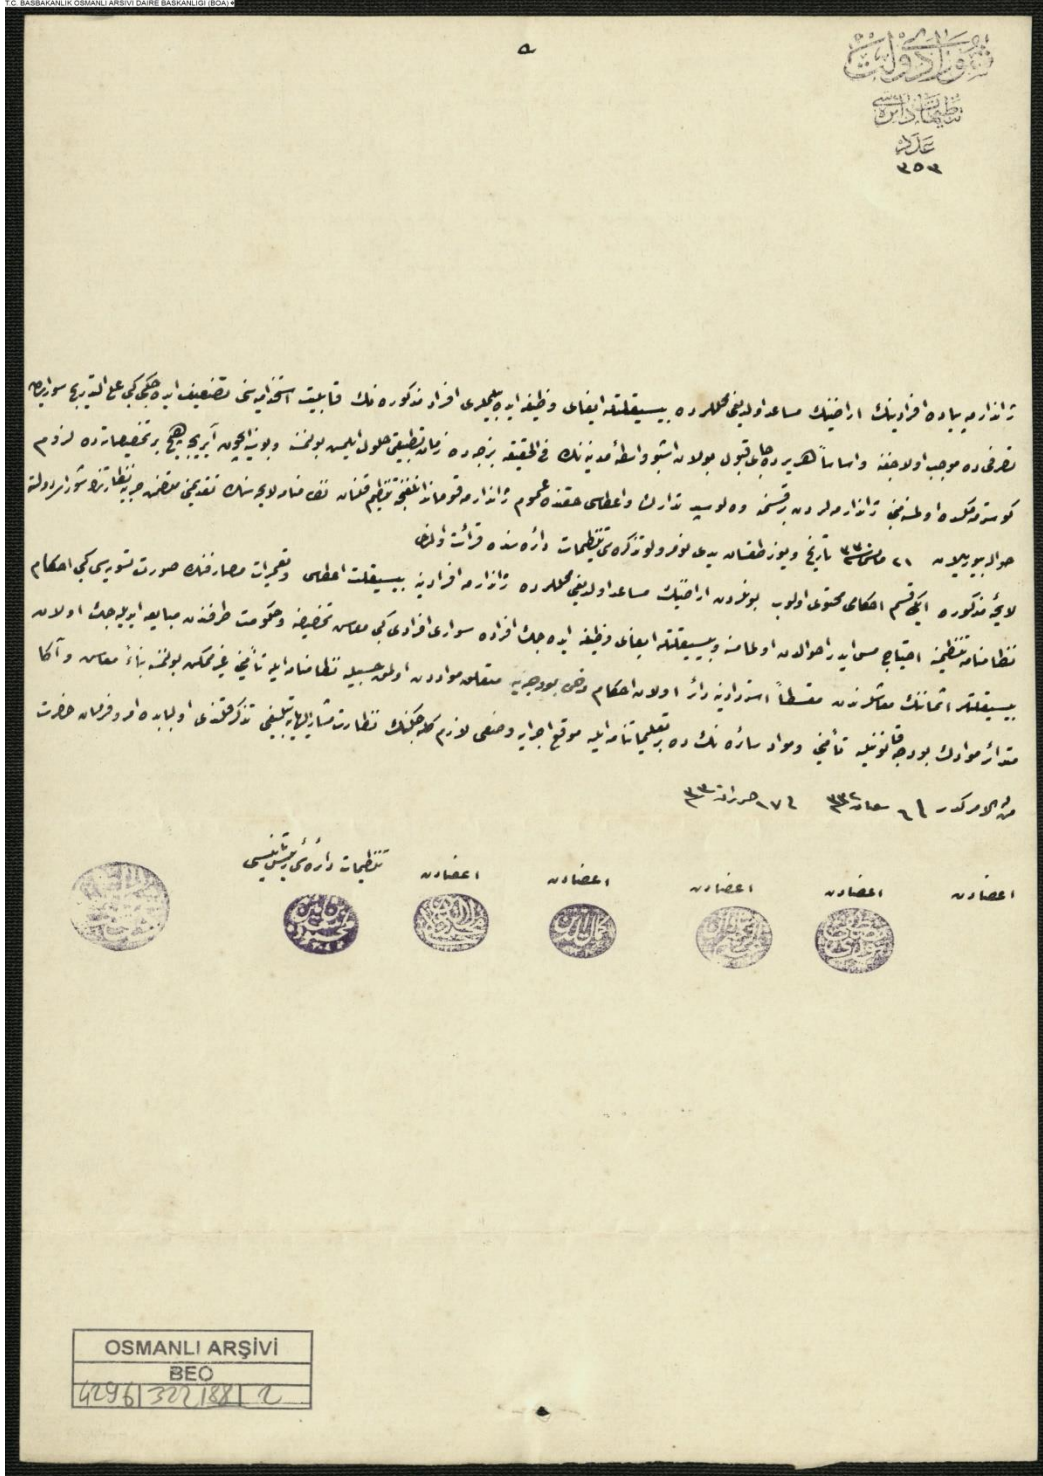 T.C. BASBAKANLIK OSMANLI ARSIVI DAIRE BASKANLIGI (BOA)
٥
شورای دولت
تنظیمات دائره‌سی
عدد
٣٥٣
ژاندارمه پیاده افرادینك اراضینك مساعد اولدیغی محللرده بیسیقلتله ایفای وظیفه ایده بیلملری افراد مذکوره‌نك قابلیت استخدامیه‌سنی تضعیف ایده‌جکی کبی علی التدریج سواریجه
تصرفی ده موجب اولاجغنه و اساساً هر یرده جای قبول بولان اشبو واسطهٔ مدنیه‌نك فی الحقیقه بزجه ده زمان تطبیقی حلول ایلمش بولنمسنه و بونك ایچون آیریجه هیچ بر تخصیصاته ده لزوم
کوسترمکسزین ژاندارمه‌لردن بر قسمنه وه‌لوسپید تدارك و اعطاسی حقنده عموم ژاندارمه قوماندانلغنجه تنظیم قلنان نظامنامه لایحه‌سنك تقدیمنی متضمن حربیه نظارتنك شورای دولته
حواله بیوریلان ٢١ مارت ٣٣٠ تاریخ و یوز طقسان یدی نومرولو تذکره‌سی تنظیمات دائره‌سنده قرائت اولندی
لایحهٔ مذکوره ایکی قسم احکامی محتوی اولوب بونلردن اراضینك مساعد اولدیغی محللرده ژاندارمه افرادینه بیسیقلت اعطاسی و تعمیرات مصارفنك صورت تسویه‌سی کبی احکام
نظامنامه تنظیمنه احتیاج مس ایدر احوالدن اولمامسنه و بیسیقلتله ایفای وظیفه ایده‌جك افراده سواری افرادی کبی معاش تخصیصی و حکومت طرفندن مبایعه ایدیله‌جك اولان
بیسیقلتلر اثماننك معاشلرندن مقسطاً استردادینه دائر اولان احکام دخی بودجه‌یه متعلق موادن اولمق حسبیله نظامنامه ایله تأمینی غیر ممکن بولنمسنه بناءً معاش و آکا
متدائر موادك بودجه قانونیله تأمینی و مواد سائره‌نك ده بر تعلیماتنامه ایله موقع اجرایه وضعی لازم کله‌جکنك نظارت مشار الیهایه تبلیغی تذکر قلندی اولبابده امر و فرمان حضرت
من له الامرکدر شعبان ٣٣٢ حزیران ٣٣٠
اعضادن اعضادن اعضادن اعضادن اعضادن تنظیمات دائره‌سی رئیس ثانیسی
OSMANLI ARŞİVİ
BEO
4296 322188 2